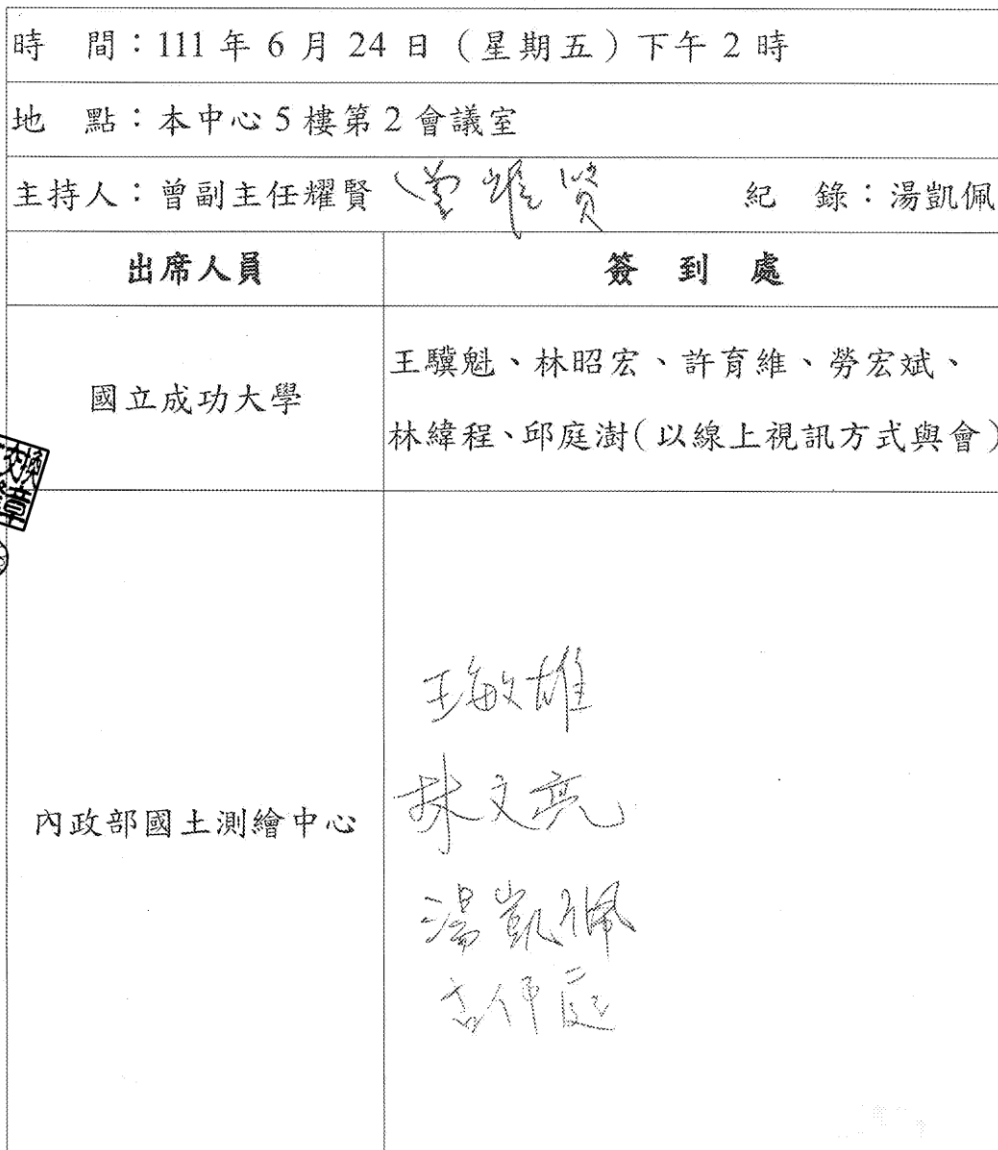 時 間：111 年 6 月 24 日（星期五）下午 2 時
地 點：本中心 5 樓第 2 會議室
主持人：曾副主任耀賢 曾耀賢 紀 錄：湯凱佩
出席人員 簽 到 處
國立成功大學
王驥魁、林昭宏、許育維、勞宏斌、
林緯程、邱庭澍(以線上視訊方式與會)
換
章
內政部國土測繪中心
王敏雄
林文亮
湯凱佩